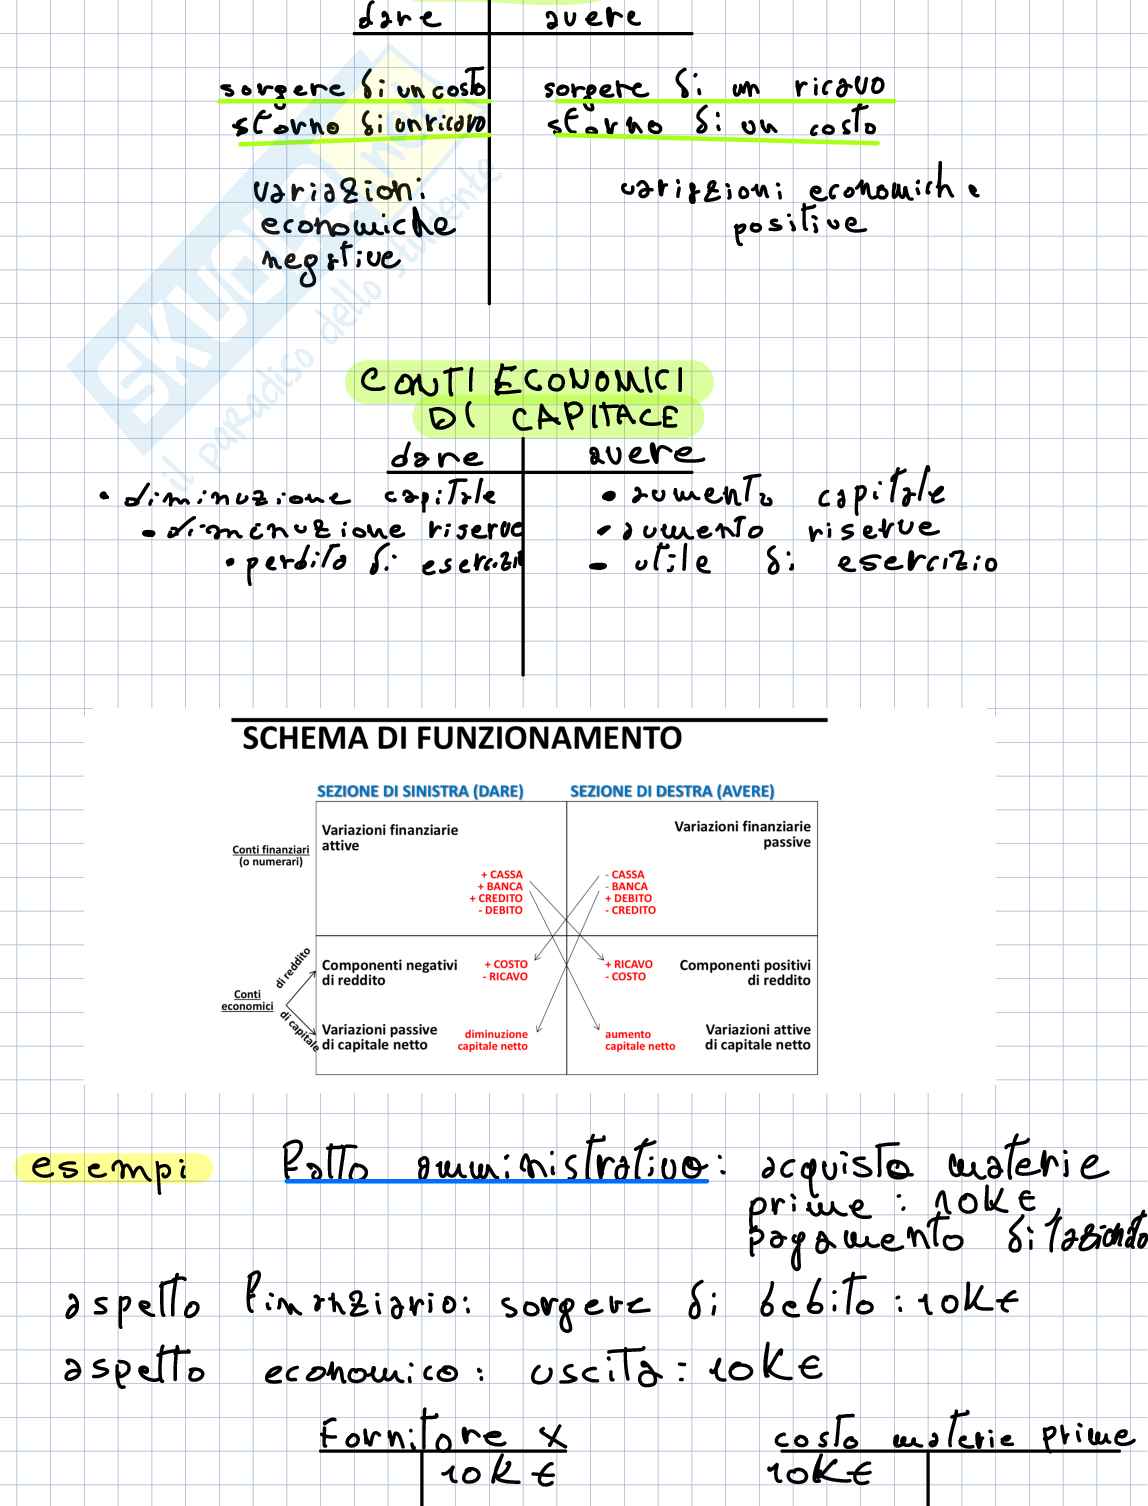 dare avere
sorgere di un costo sorgere di un ricavo
storno di un ricavo storno di un costo
variazioni variazioni economiche
economiche positive
negative
SKUOLA.net
il paradiso dello studente
CONTI ECONOMICI
DI CAPITALE
dare avere
• diminuzione capitale • aumento capitale
• diminuzione riserve • aumento riserve
• perdita di esercizio • utile di esercizio
SCHEMA DI FUNZIONAMENTO
SEZIONE DI SINISTRA (DARE) SEZIONE DI DESTRA (AVERE)
Conti finanziari
(o numerari)
Variazioni finanziarie
attive
Variazioni finanziarie
passive
+ CASSA
+ BANCA
+ CREDITO
- DEBITO
- CASSA
- BANCA
+ DEBITO
- CREDITO
Conti
economici
di reddito
di capitale
Componenti negativi
di reddito
+ COSTO
- RICAVO
+ RICAVO
- COSTO
Componenti positivi
di reddito
Variazioni passive
di capitale netto
diminuzione
capitale netto
aumento
capitale netto
Variazioni attive
di capitale netto
esempi Fatto amministrativo: acquisto materie
prime: 10K €,
pagamento dilazionato
aspetto finanziario: sorgere di debito: 10K €
aspetto economico: uscita: 10K €
Fornitore X costo materie prime
10K € 10K €